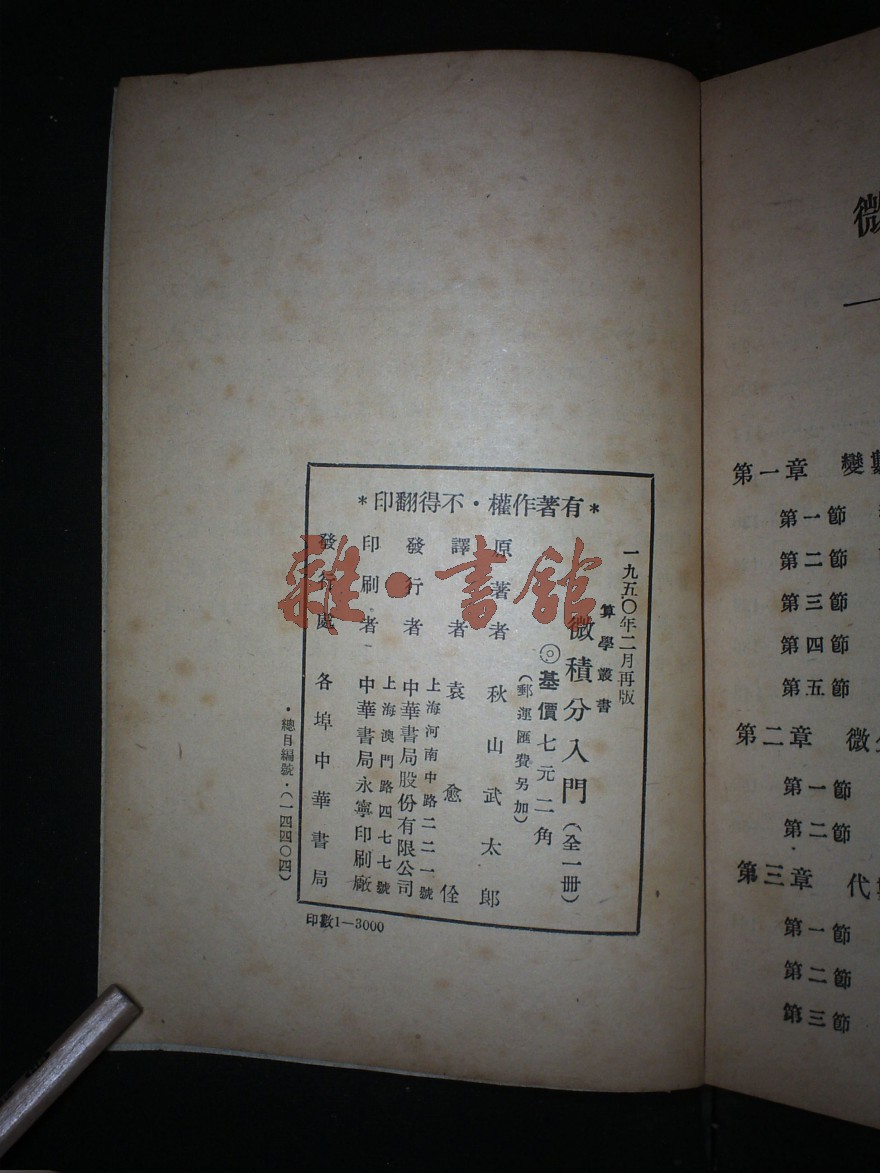 *有著作權·不得翻印*
一九五〇年二月再版
算學叢書
微積分入門(全一冊)
◎基價七元二角
(郵運匯費另加)
原著者 秋山武太郎
譯者 袁愈佺
發行者 中華書局股份有限公司
上海河南中路二二一號
印刷者 中華書局永寧印刷廠
上海澳門路四七七號
發行處 各埠中華書局
·總目編號·(一四四〇四)
印數1—3000
雜·書館
微
第一章 變數
第一節
第二節
第三節
第四節
第五節
第二章 微分
第一節
第二節
第三章 代數
第一節
第二節
第三節